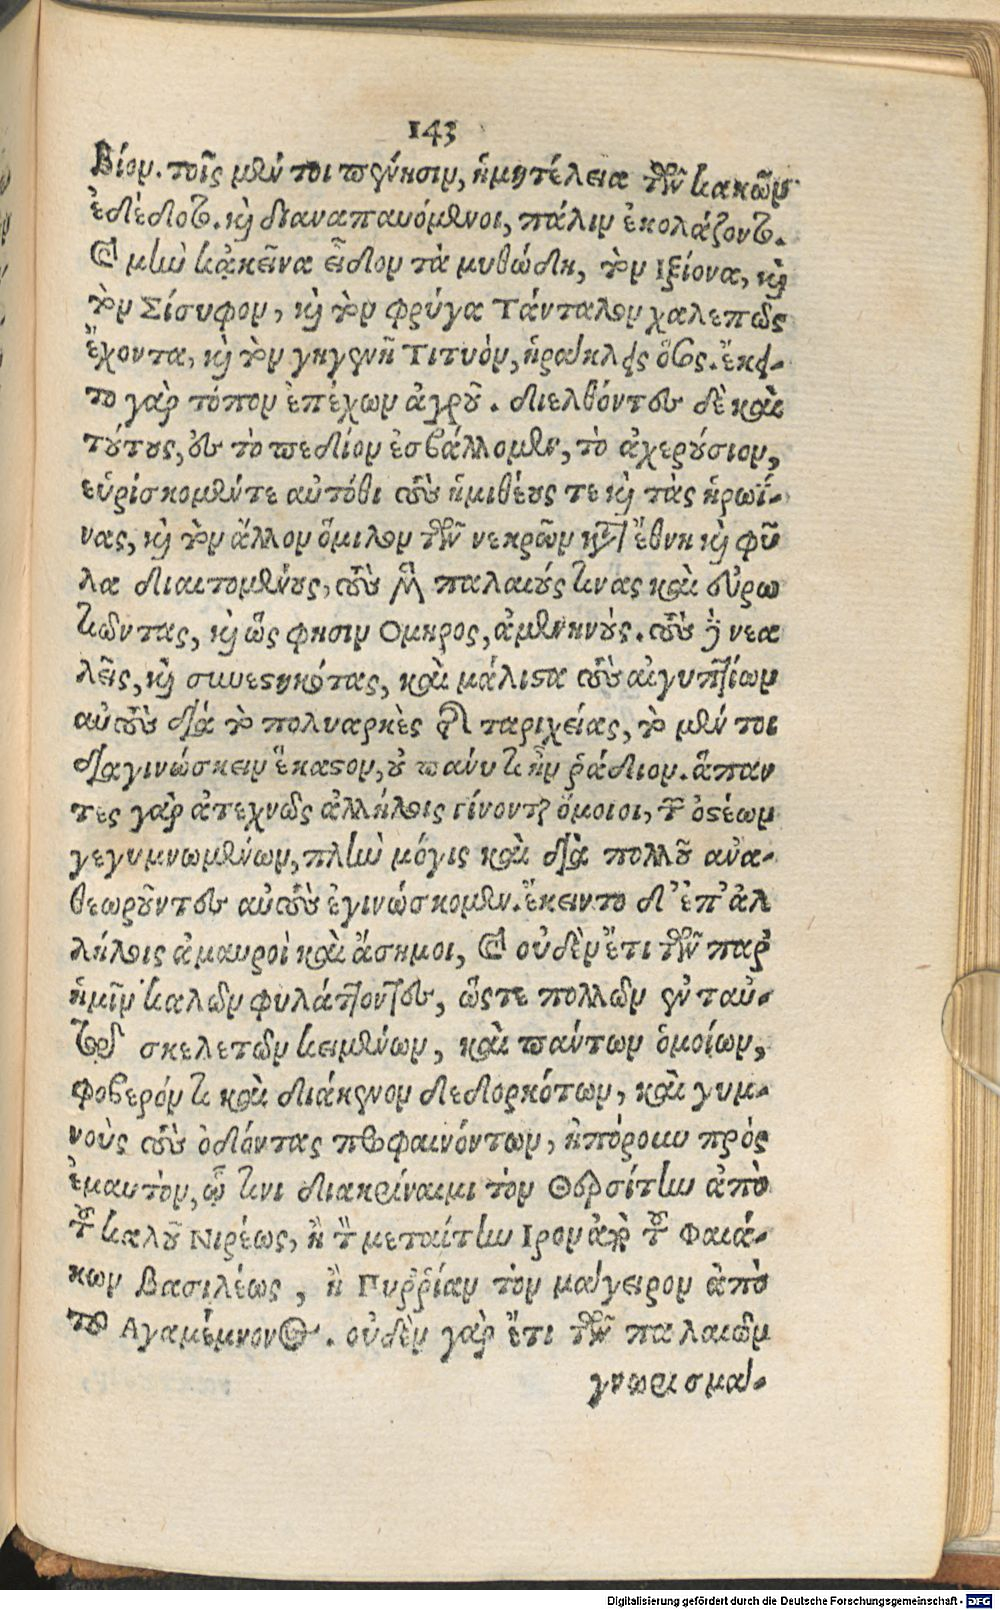 143
βίον. τοῖς μέν τοι πένησιν, ἡμιτέλεια τῶν κακῶν
ἐδέδοτο. καὶ διαναπαυόμενοι, πάλιν ἐκολάζοντο.
καὶ μὴν κᾀκεῖνα εἶδον τὰ μυθώδη, τὸν Ιξίονα, καὶ
τὸν Σίσυφον, καὶ τὸν φρύγα Τάνταλον χαλεπῶς
ἔχοντα, καὶ τὸν γηγενῆ Τιτυὸν, ἡράκλεις ὅσος. ἔκει-
το γὰρ τόπον ἐπέχων ἀγροῦ. διελθόντες δὲ καὶ
τούτους, ἐς τὸ πεδίον ἐσβάλλομεν, τὸ ἀχερούσιον,
εὑρίσκομέν τε αὐτόθι τοὺς ἡμιθέους τε καὶ τὰς ἡρωΐ-
νας, καὶ τὸν ἄλλον ὅμιλον τῶν νεκρῶν κατὰ ἔθνη καὶ φῦ
λα διαιτομένους, τοὺς μὲν παλαιούς τινας καὶ εὐρω
τιῶντας, καὶ ὥς φησιν Ομηρος, ἀμενηνούς. τοὺς δὲ νεα
λεῖς, καὶ συνεστηκότας, καὶ μάλιστα τοὺς αἰγυπτίων
αὐτοὺς διὰ τὸ πολυαρκὲς τῆς ταριχείας, τὸ μέν τοι
διαγινώσκειν ἕκαστον, οὐ πάνυ τι ἦν ῥάδιον. ἅπαν
τες γὰρ ἀτεχνῶς ἀλλήλοις γίνονται ὅμοιοι, τῶν ὀστέων
γεγυμνωμένων, πλὴν μόγις καὶ διὰ πολλοῦ ἀνα-
θεωροῦντες αὐτοὺς ἐγινώσκομεν. ἔκειντο δ' ἐπ' ἀλ
λήλοις ἀμαυροὶ καὶ ἄσημοι, καὶ οὐδὲν ἔτι τῶν παρ'
ἡμῖν καλῶν φυλάττοντες, ὥστε πολλῶν ἐν ταὐ-
τῷ σκελετῶν κειμένων, καὶ πάντων ὁμοίων,
φοβερόν τι καὶ διάκενον δεδορκότων, καὶ γυμ-
νοὺς τοὺς ὀδόντας προφαινόντων, ἠπόρουν πρὸς
ἐμαυτὸν, ᾧ τινι διακρίναιμι τὸν Θερσίτην ἀπὸ
τοῦ καλοῦ Νιρέως, ἢ τὸν μεταίτην Ιρον ἀπὸ τοῦ Φαιά-
κων βασιλέως, ἢ Πυρρίαν τὸν μάγειρον ἀπὸ
τοῦ Αγαμέμνονος. οὐδὲν γὰρ ἔτι τῶν παλαιῶν
γνωρισμά-
Digitalisierung gefördert durch die Deutsche Forschungsgemeinschaft - DFG